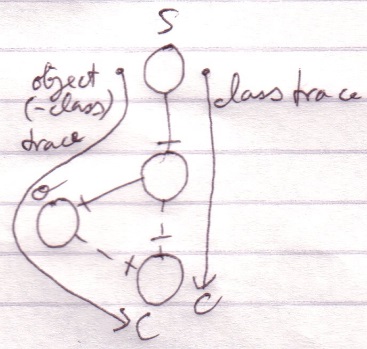 S
object
(-class)
trace
class trace
O
C
C